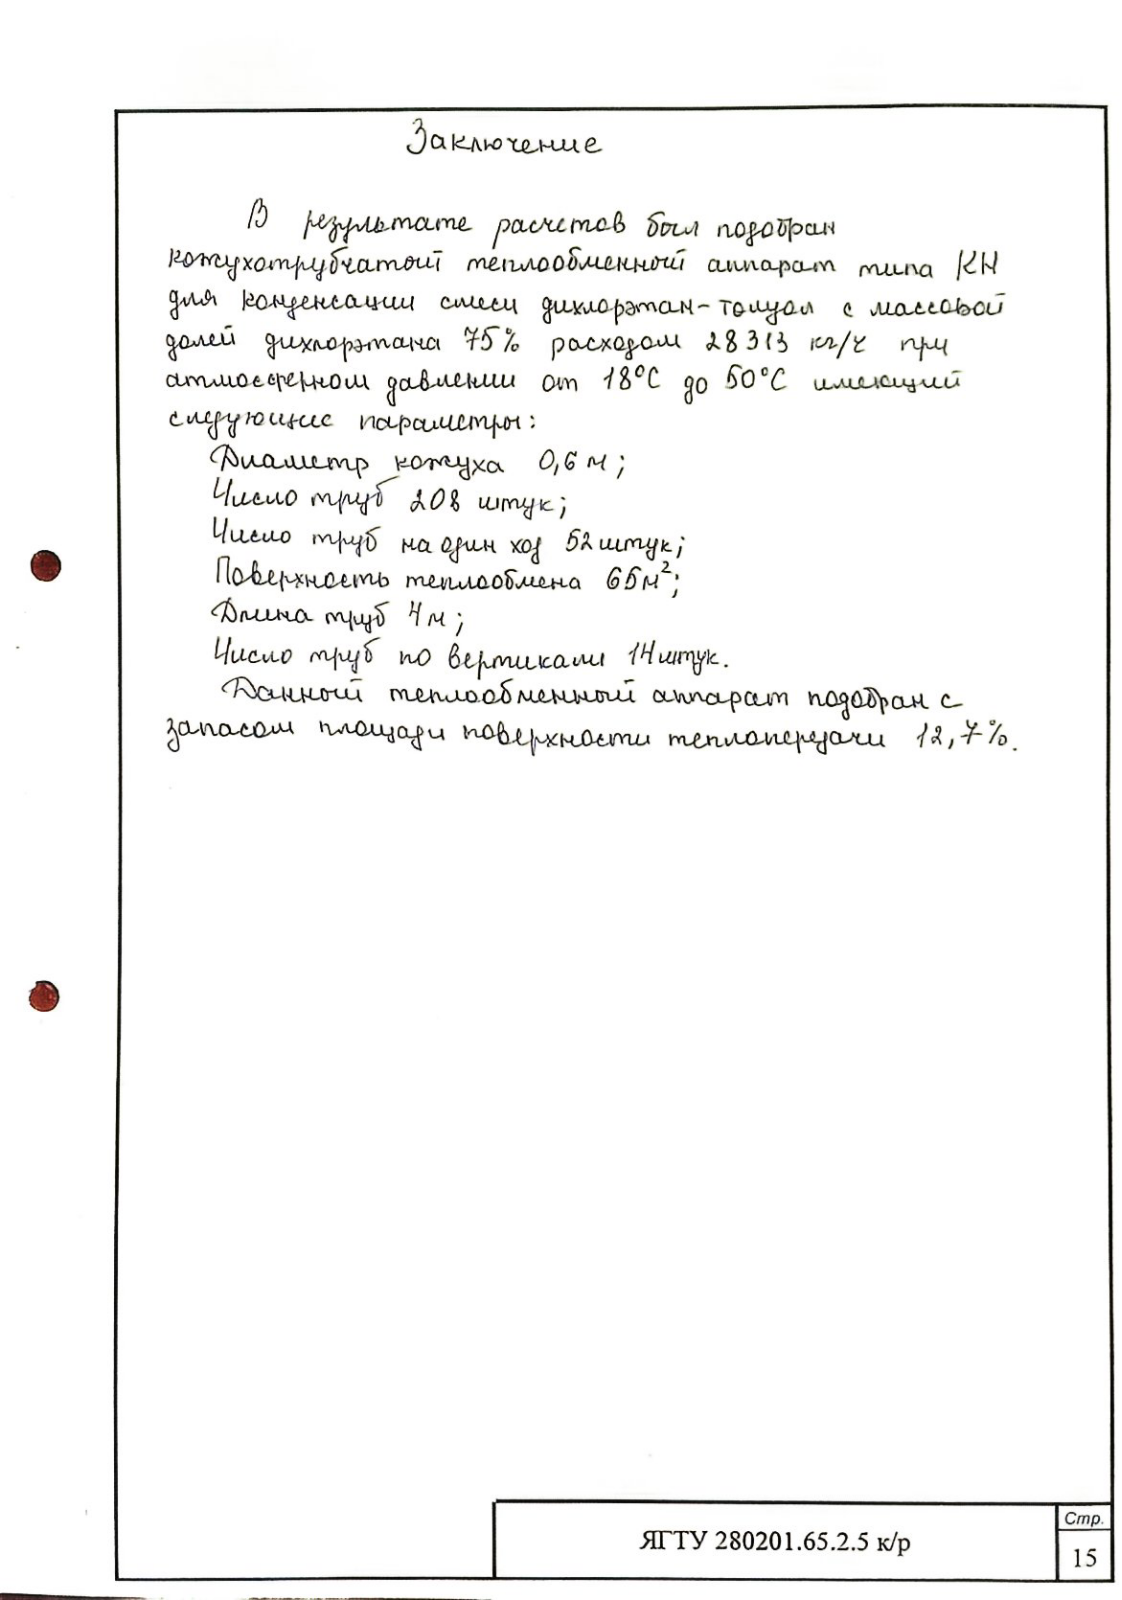 Заключение
В результате расчетов был подобран
кожухотрубчатый теплообменный аппарат типа КН
для конденсации смеси дихлорэтан-толуол с массовой
долей дихлорэтана 75% расходом 28313 кг/ч при
атмосферном давлении от 18°С до 50°С имеющий
следующие параметры:
Диаметр кожуха 0,6 м;
Число труб 208 штук;
Число труб на один ход 52 штук;
Поверхность теплообмена 65м²;
Длина труб 4м;
Число труб по вертикали 14 штук.
Данный теплообменный аппарат подобран с
запасом площади поверхности теплопередачи 12,7%.
ЯГТУ 280201.65.2.5 к/р
Стр.
15